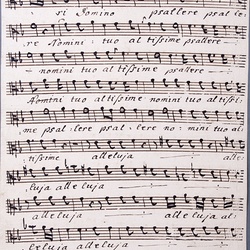 ri Domino psallere psal le
re Nomini : tuo al tissime psallere
nomini tuo al tissime psallere
Nomini tuo altissime nomini tuo altissi
me psal : lere psal : lere no : mini tuo al
tissime alleluja
luja alleluja
alleluja alleluja al
leluja alleluja